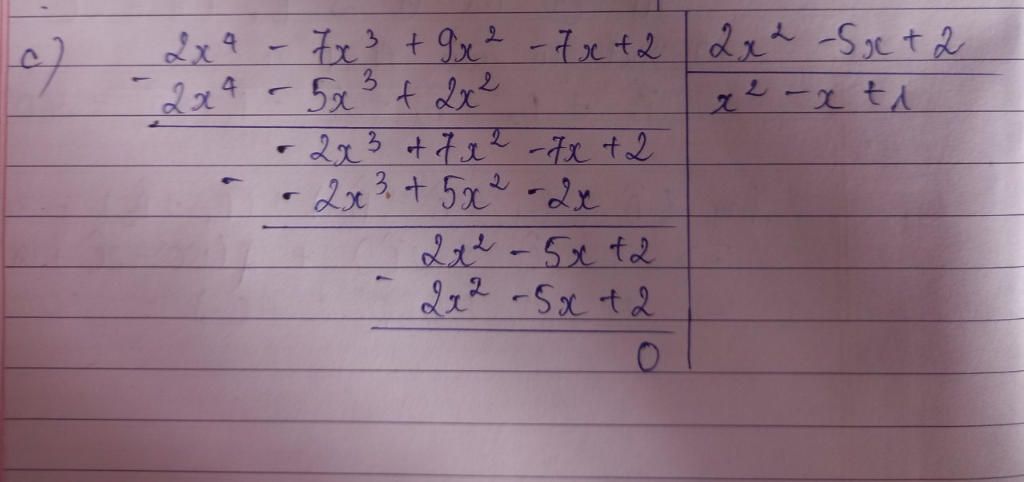 c) 2x⁴ - 7x³ + 9x² - 7x + 2 | 2x² - 5x + 2
- 2x⁴ - 5x³ + 2x² | x² - x + 1
- 2x³ + 7x² - 7x + 2
- - 2x³ + 5x² - 2x
2x² - 5x + 2
- 2x² - 5x + 2
0